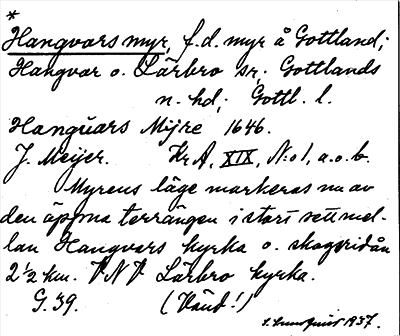 *
Hangvars myr, f.d. myr å Gottland;
Hangvar o. Lärbro sr; Gottlands
n. hd; Gottl. l.
Hanguars Mÿre 1646.
J. Meijer. KrA, XIX, N:o 1, a.o.b.
Myrens läge markeras nu av
den öppna terrängen i stort sett mel-
lan Hangvars kyrka o. skogsridån
2 ½ km. VNV Lärbro kyrka.
G. 39. (Vänd!)
S. Lundquist 1937.